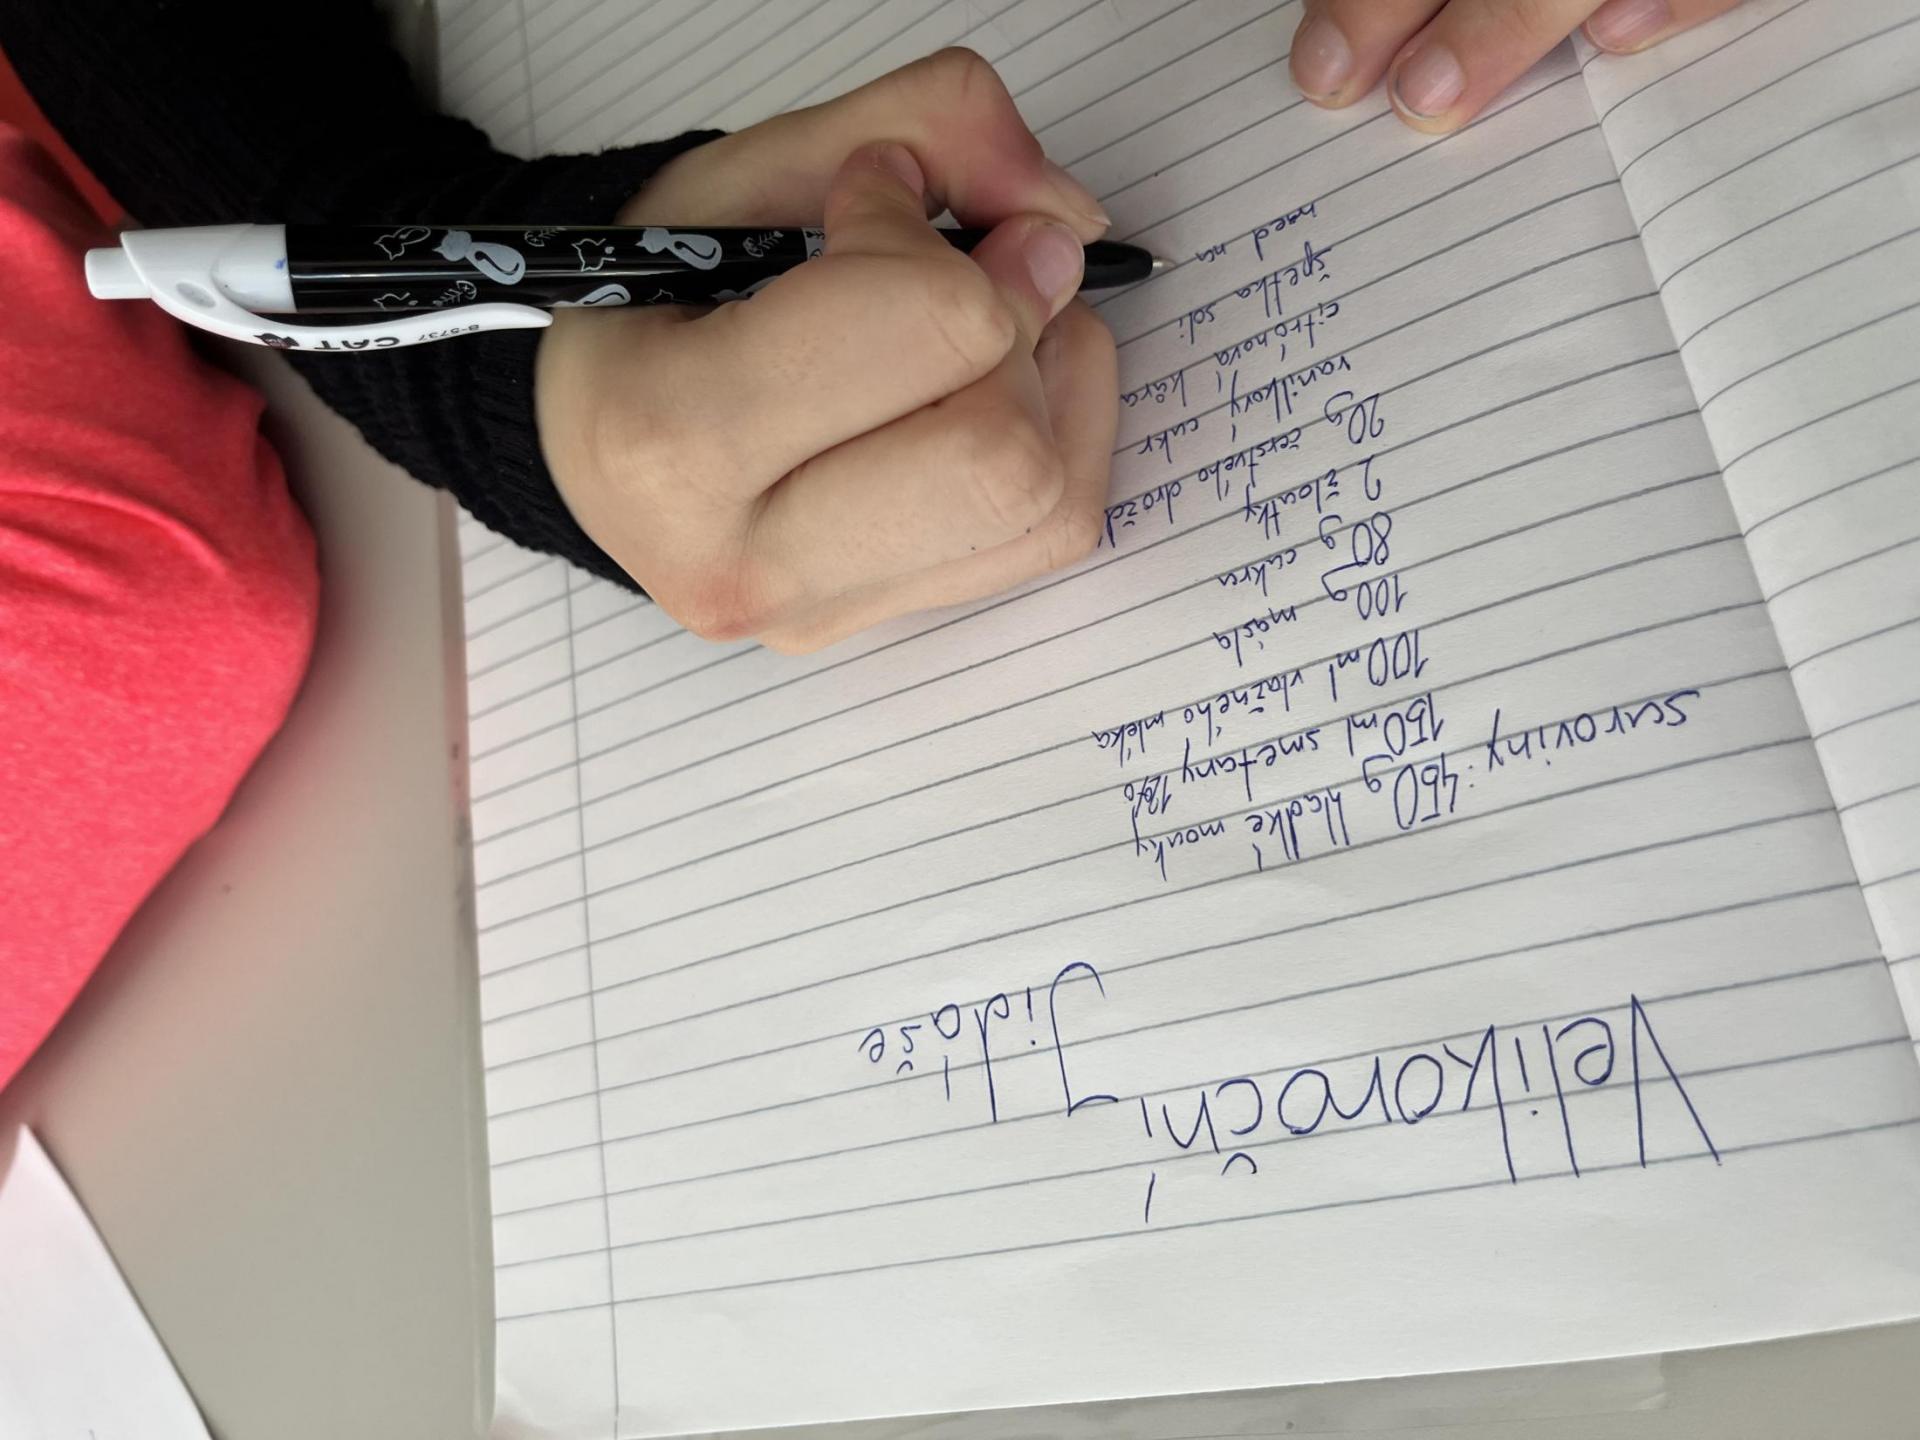 Velikonoční
Jidáše
suroviny: 450g hladké mouky
150ml smetany 12%
100ml vlažného mléka
100g másla
80g cukru
2 žloutky
20g čerstvého droždí
vanilkový cukr
citrónova kůra
špetka soli
med na
CAT
B-5737